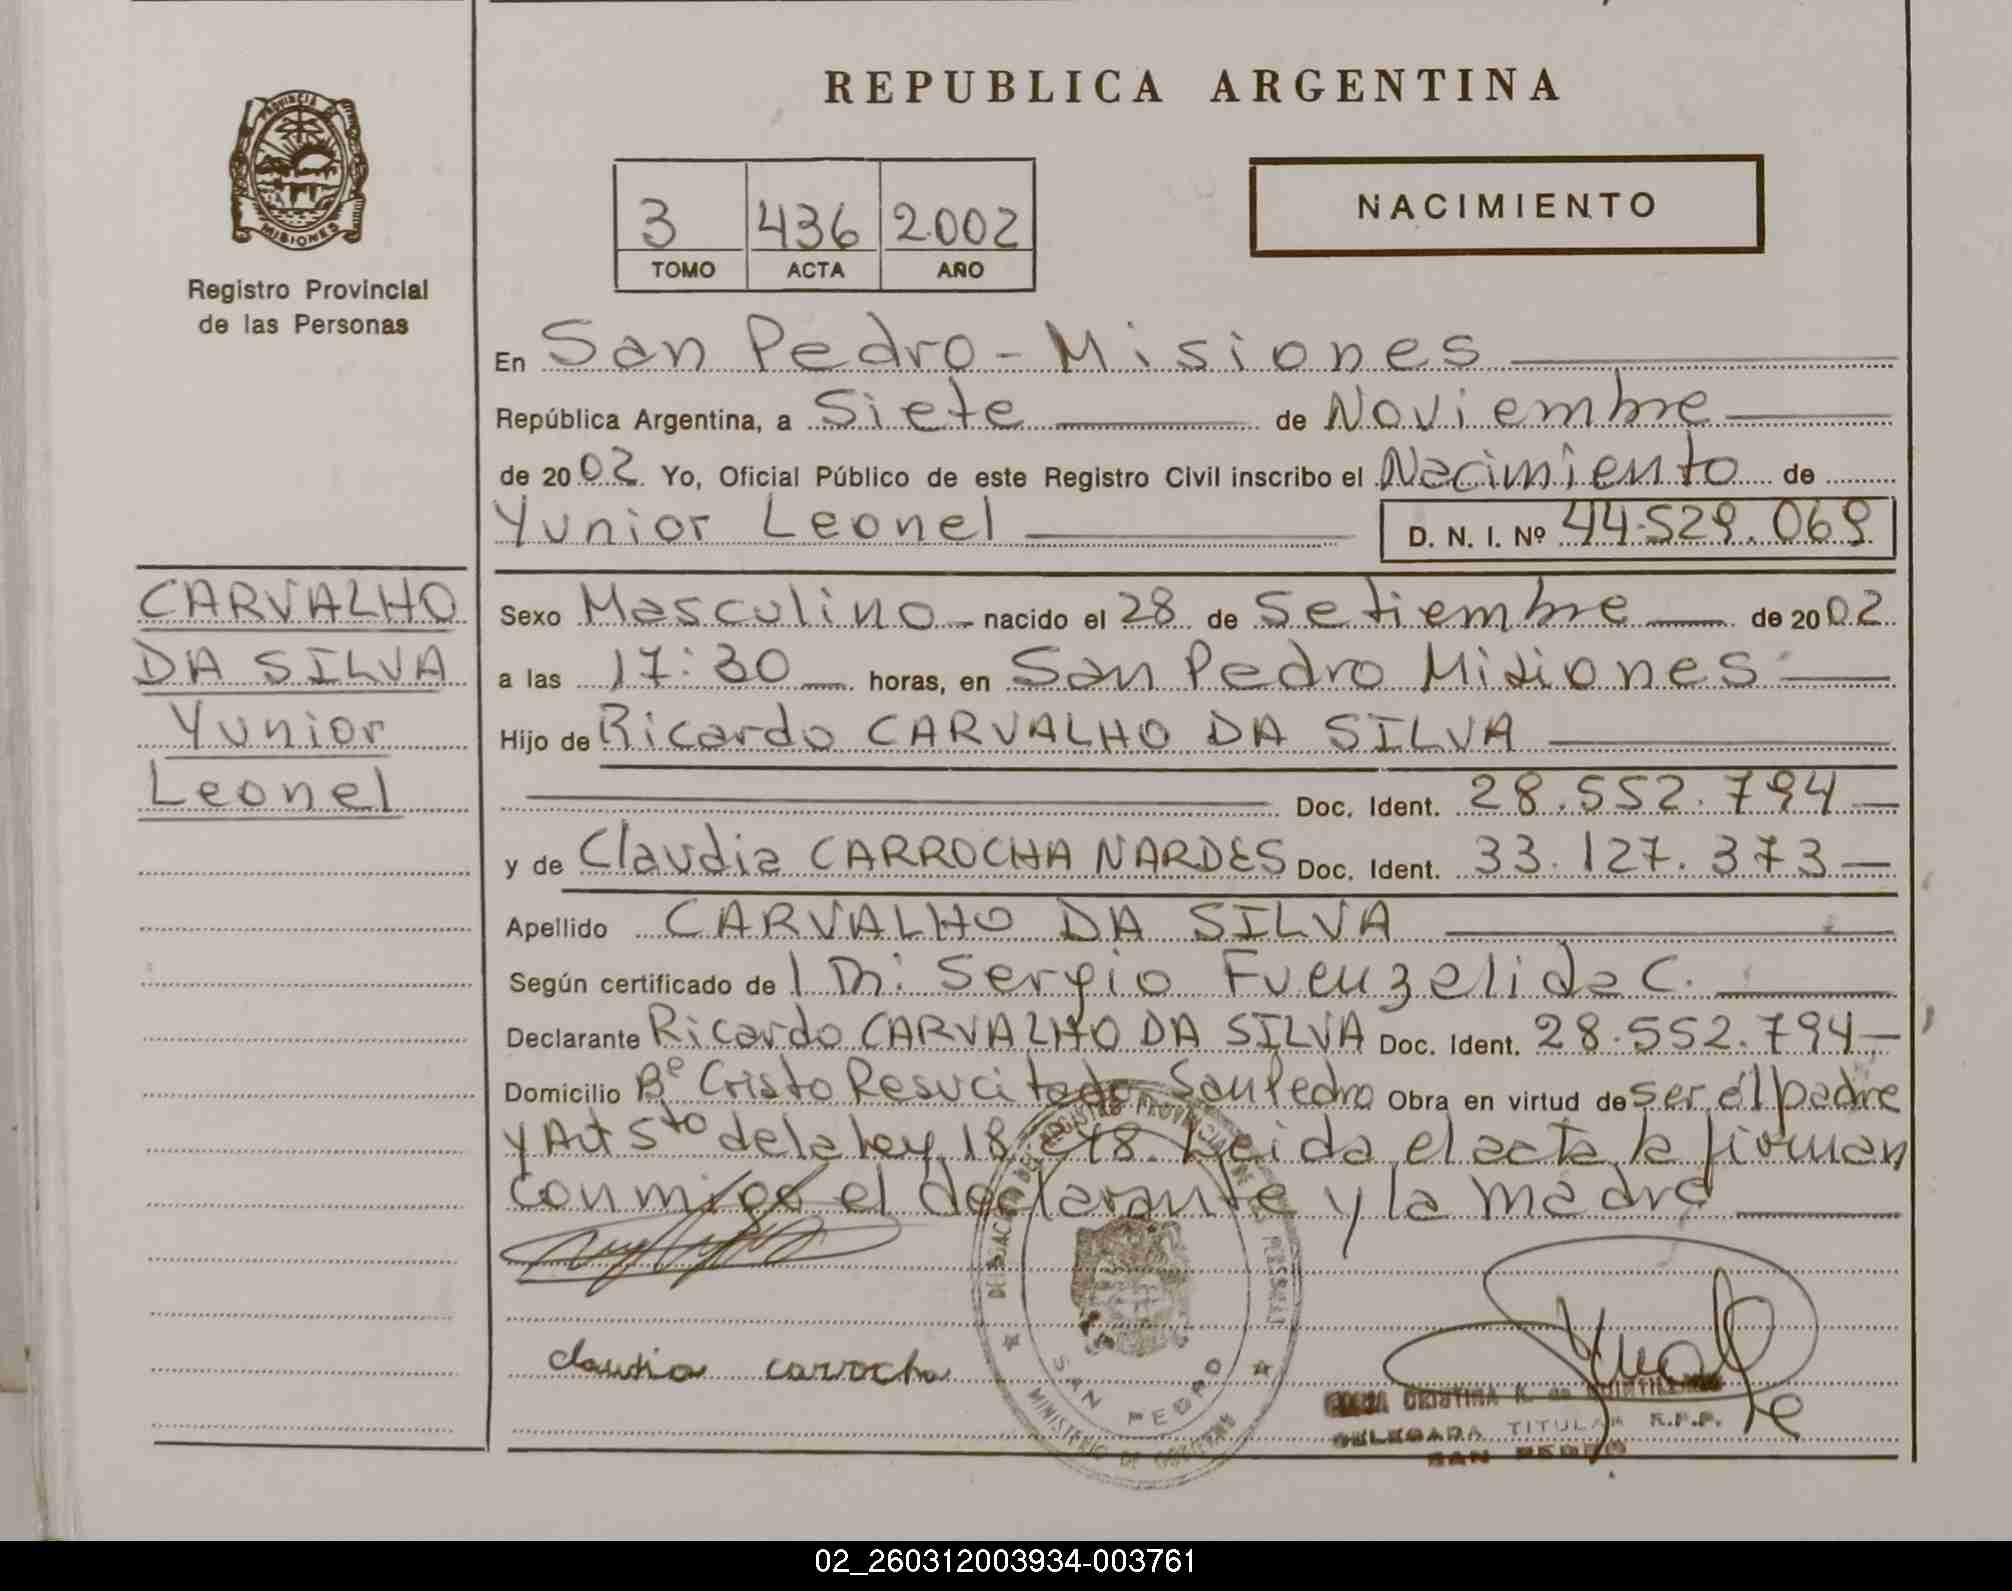 REPUBLICA ARGENTINA
PROVINCIA DE MISIONES
Registro Provincial
de las Personas
3 436 2002
TOMO ACTA AÑO
NACIMIENTO
En San Pedro - Misiones
República Argentina, a Siete de Noviembre
de 2002 Yo, Oficial Público de este Registro Civil inscribo el Nacimiento de
Yunior Leonel D. N. I. Nº 44.529.069
CARVALHO
DA SILVA
Yunior
Leonel
Sexo Masculino - nacido el 28 de Setiembre de 2002
a las 17:30 horas, en San Pedro Misiones
Hijo de Ricardo CARVALHO DA SILVA
Doc. Ident. 28.552.794
y de Claudia CARROCHA NARDES Doc. Ident. 33.127.373
Apellido CARVALHO DA SILVA
Según certificado de Sergio Fuenzelida C.
Declarante Ricardo CARVALHO DA SILVA Doc. Ident. 28.552.794
Domicilio Bº Cristo Resucitado San Pedro Obra en virtud de ser el padre
y Art 5to de la ley 18.248. Leida el acta la firman
conmigo el declarante y la madre
claudia carrocha
REGISTRO PROVINCIAL DE LAS PERSONAS
SAN PEDRO
MINISTERIO DE GOBIERNO
CRISTINA
DELEGADA TITULAR R.P.P.
SAN PEDRO
02_260312003934-003761